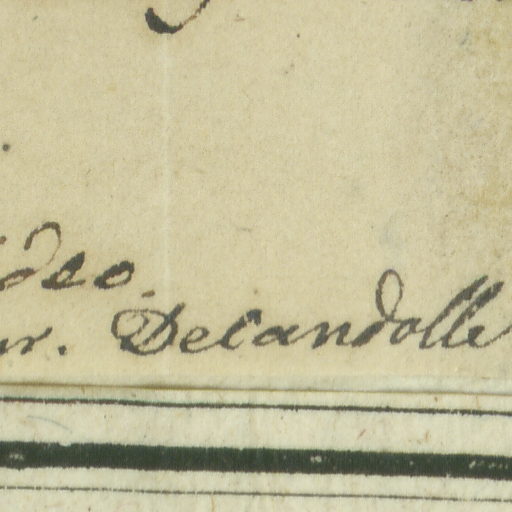 ideo.
r. Decandolle